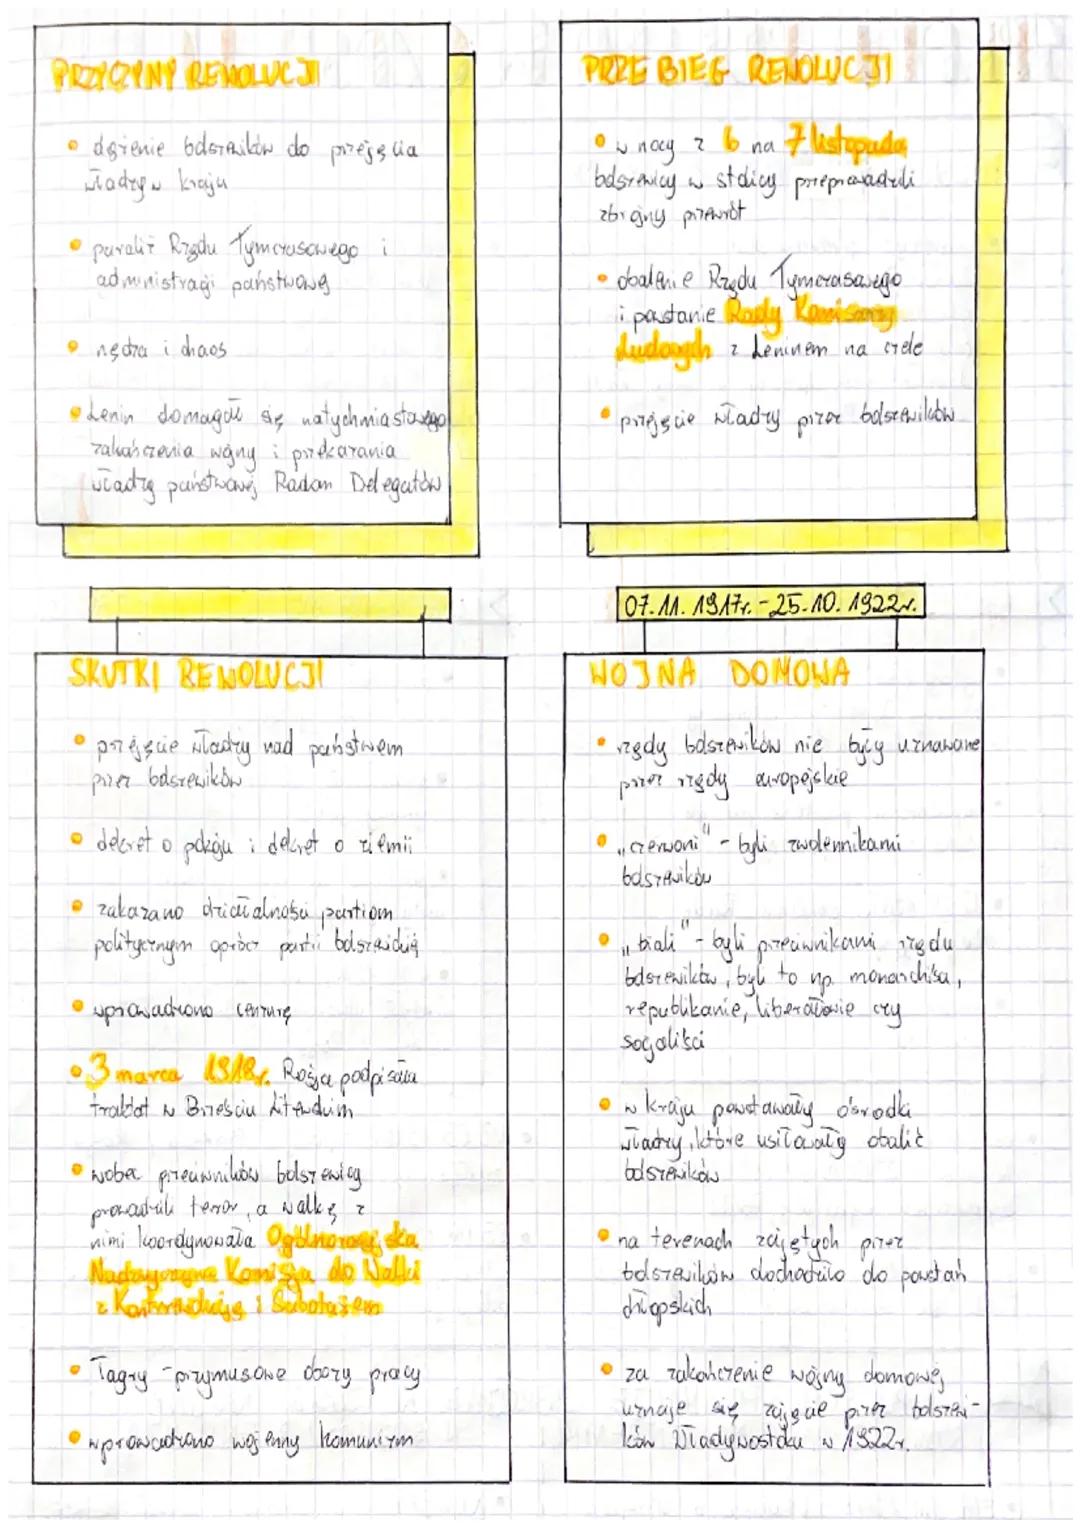 PRZYCZYNY REWOLUCJI
• dążenie bolszewików do przejęcia
władzy w kraju
• paraliż Rządu Tymczasowego i
administracji państwowej
• nędza i chaos
• Lenin domagał się natychmiastowego
zakończenia wojny i przekazania
władzy państwowej Radom Delegatów
PRZEBIEG REWOLUCJI
• w nocy z 6 na 7 listopada
bolszewicy w stolicy przeprowadzili
zbrojny przewrót
• obalenie Rządu Tymczasowego
i powstanie Rady Komisarzy
Ludowych z Leninem na czele
• przejęcie władzy przez bolszewików
SKUTKI REWOLUCJI
• przejęcie władzy nad państwem
przez bolszewików
• dekret o pokoju i dekret o ziemii
• zakazano działalności partiom
politycznym oprócz partii bolszewickiej
• wprowadzono cenzurę
• 3 marca 1918r. Rosja podpisała
traktat w Brześciu Litewskim
• wobec przeciwników bolszewicy
prowadzili terror, a walkę z
nimi koordynowała Ogólnorosyjska
Nadzwyczajna Komisja do Walki
z Kontrrewolucją i Sabotażem
• łagry - przymusowe obozy pracy
• wprowadzono wojenny komunizm
07.11.1917r. - 25.10.1922r.
WOJNA DOMOWA
• rządy bolszewików nie były uznawane
przez rządy europejskie
• „czerwoni" - byli zwolennikami
bolszewików
• „biali" - byli przeciwnikami rządu
bolszewików, byli to np. monarchiści,
republikanie, liberałowie czy
socjaliści
• w kraju powstawały ośrodki
władzy, które usiłowały obalić
bolszewików
• na terenach zajętych przez
bolszewików dochodziło do powstań
chłopskich
• za zakończenie wojny domowej
uznaje się zajęcie przez bolszewi-
ków Władywostoku w 1922r.